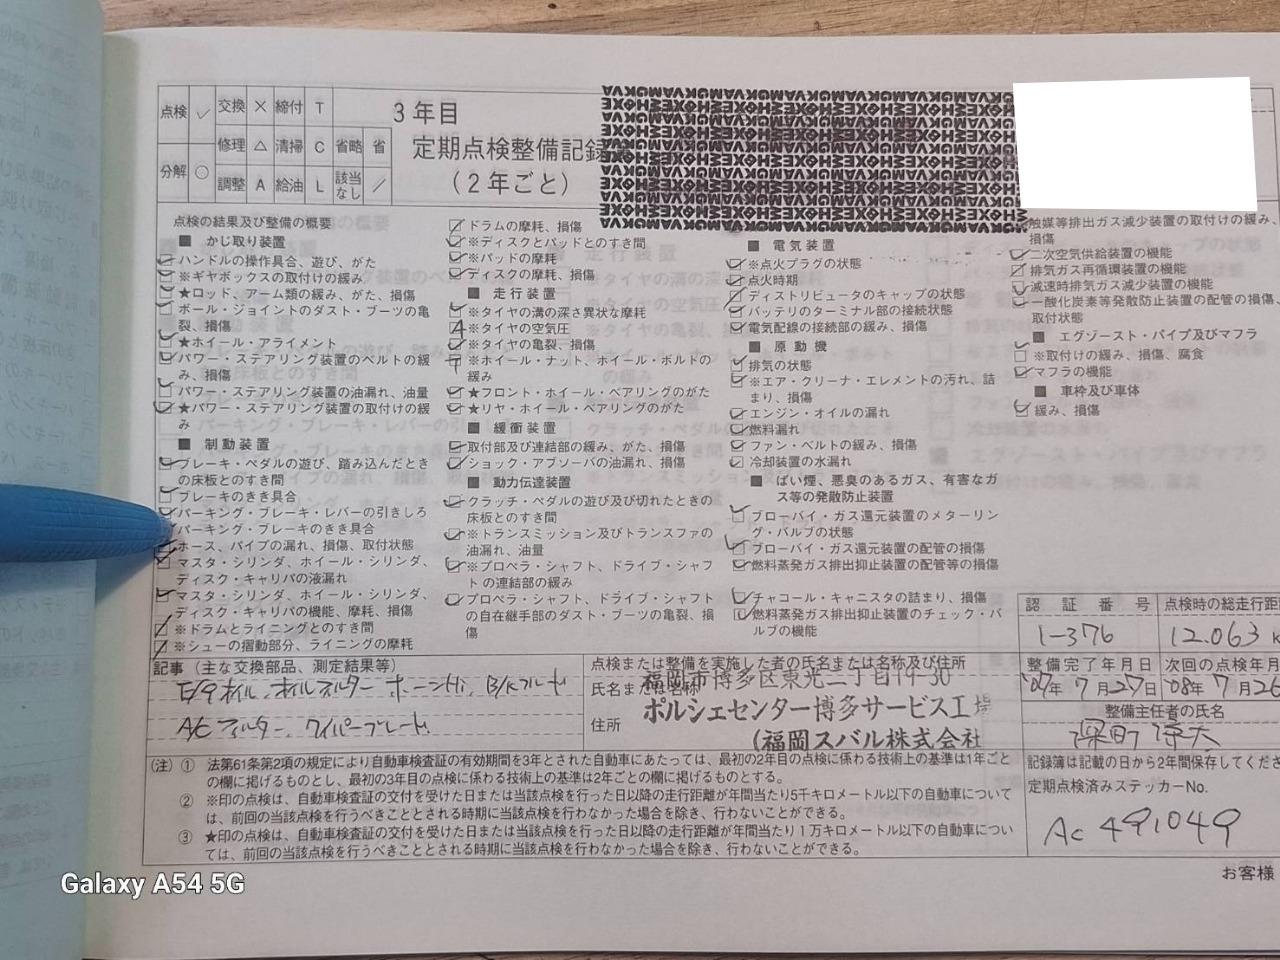 点検 ✓ 交換 × 締付 T
修理 △ 清掃 C 省略 省
分解 ○ 調整 A 給油 L 該当なし ／
3年目
定期点検整備記録
(2年ごと)
点検の結果及び整備の概要
■ かじ取り装置
ハンドルの操作具合、遊び、がた
※ギヤボックスの取付けの緩み
★ロッド、アーム類の緩み、がた、損傷
ボール・ジョイントのダスト・ブーツの亀
裂、損傷
★ホイール・アライメント
パワー・ステアリング装置のベルトの緩
み、損傷
パワー・ステアリング装置の油漏れ、油量
★パワー・ステアリング装置の取付けの緩
み
■ 制動装置
ブレーキ・ペダルの遊び、踏み込んだとき
の床板とのすき間
ブレーキのきき具合
パーキング・ブレーキ・レバーの引きしろ
パーキング・ブレーキのきき具合
ホース、パイプの漏れ、損傷、取付状態
マスタ・シリンダ、ホイール・シリンダ、
ディスク・キャリパの液漏れ
マスタ・シリンダ、ホイール・シリンダ、
ディスク・キャリパの機能、摩耗、損傷
※ドラムとライニングとのすき間
※シューの摺動部分、ライニングの摩耗
ドラムの摩耗、損傷
※ディスクとパッドとのすき間
※パッドの摩耗
ディスクの摩耗、損傷
■ 走行装置
※タイヤの溝の深さ異状な摩耗
※タイヤの空気圧
※タイヤの亀裂、損傷
※ホイール・ナット、ホイール・ボルトの
緩み
★フロント・ホイール・ベアリングのがた
★リヤ・ホイール・ベアリングのがた
■ 緩衝装置
取付部及び連結部の緩み、がた、損傷
ショック・アブソーバの油漏れ、損傷
■ 動力伝達装置
クラッチ・ペダルの遊び及び切れたときの
床板とのすき間
※トランスミッション及びトランスファの
油漏れ、油量
※プロペラ・シャフト、ドライブ・シャフ
トの連結部の緩み
プロペラ・シャフト、ドライブ・シャフト
の自在継手部のダスト・ブーツの亀裂、損
傷
■ 電気装置
※点火プラグの状態
点火時期
ディストリビュータのキャップの状態
バッテリのターミナル部の接続状態
電気配線の接続部の緩み、損傷
■ 原動機
排気の状態
※エア・クリーナ・エレメントの汚れ、詰
まり、損傷
エンジン・オイルの漏れ
燃料漏れ
ファン・ベルトの緩み、損傷
冷却装置の水漏れ
■ ばい煙、悪臭のあるガス、有害なガ
ス等の発散防止装置
ブローバイ・ガス還元装置のメターリン
グ・バルブの状態
ブローバイ・ガス還元装置の配管の損傷
燃料蒸発ガス排出抑止装置の配管等の損傷
チャコール・キャニスタの詰まり、損傷
燃料蒸発ガス排出抑止装置のチェック・バ
ルブの機能
触媒等排出ガス減少装置の取付けの緩み、
損傷
二次空気供給装置の機能
排気ガス再循環装置の機能
減速時排気ガス減少装置の機能
一酸化炭素等発散防止装置の配管の損傷、
取付状態
■ エグゾースト・パイプ及びマフラ
※取付けの緩み、損傷、腐食
マフラの機能
■ 車枠及び車体
緩み、損傷
記事 (主な交換部品、測定結果等)
E/gオイル、オイルフィルター ホーンﾁﾘ、B/Kフルード
ACフィルター、ワイパーブレード
点検または整備を実施した者の氏名または名称及び住所
氏名または名称
住所
福岡市博多区東光二丁目19-30
ポルシェセンター博多サービス工場
(福岡スバル株式会社
認証番号 点検時の総走行距
1-376 12.063 K
整備完了年月日 次回の点検年月
'07年 7月27日 '08年 7月26
整備主任者の氏名
記録簿は記載の日から2年間保存してくださ
定期点検済みステッカーNo.
AC 491049
(注) ① 法第61条第2項の規定により自動車検査証の有効期間を3年とされた自動車にあたっては、最初の2年目の点検に係わる技術上の基準は1年ごと
の欄に掲げるものとし、最初の3年目の点検に係わる技術上の基準は2年ごとの欄に掲げるものとする。
② ※印の点検は、自動車検査証の交付を受けた日または当該点検を行った日以降の走行距離が年間当たり5千キロメートル以下の自動車について
は、前回の当該点検を行うべきこととされる時期に当該点検を行わなかった場合を除き、行わないことができる。
③ ★印の点検は、自動車検査証の交付を受けた日または当該点検を行った日以降の走行距離が年間当たり1万キロメートル以下の自動車につい
ては、前回の当該点検を行うべきこととされる時期に当該点検を行わなかった場合を除き、行わないことができる。
お客様
Galaxy A54 5G